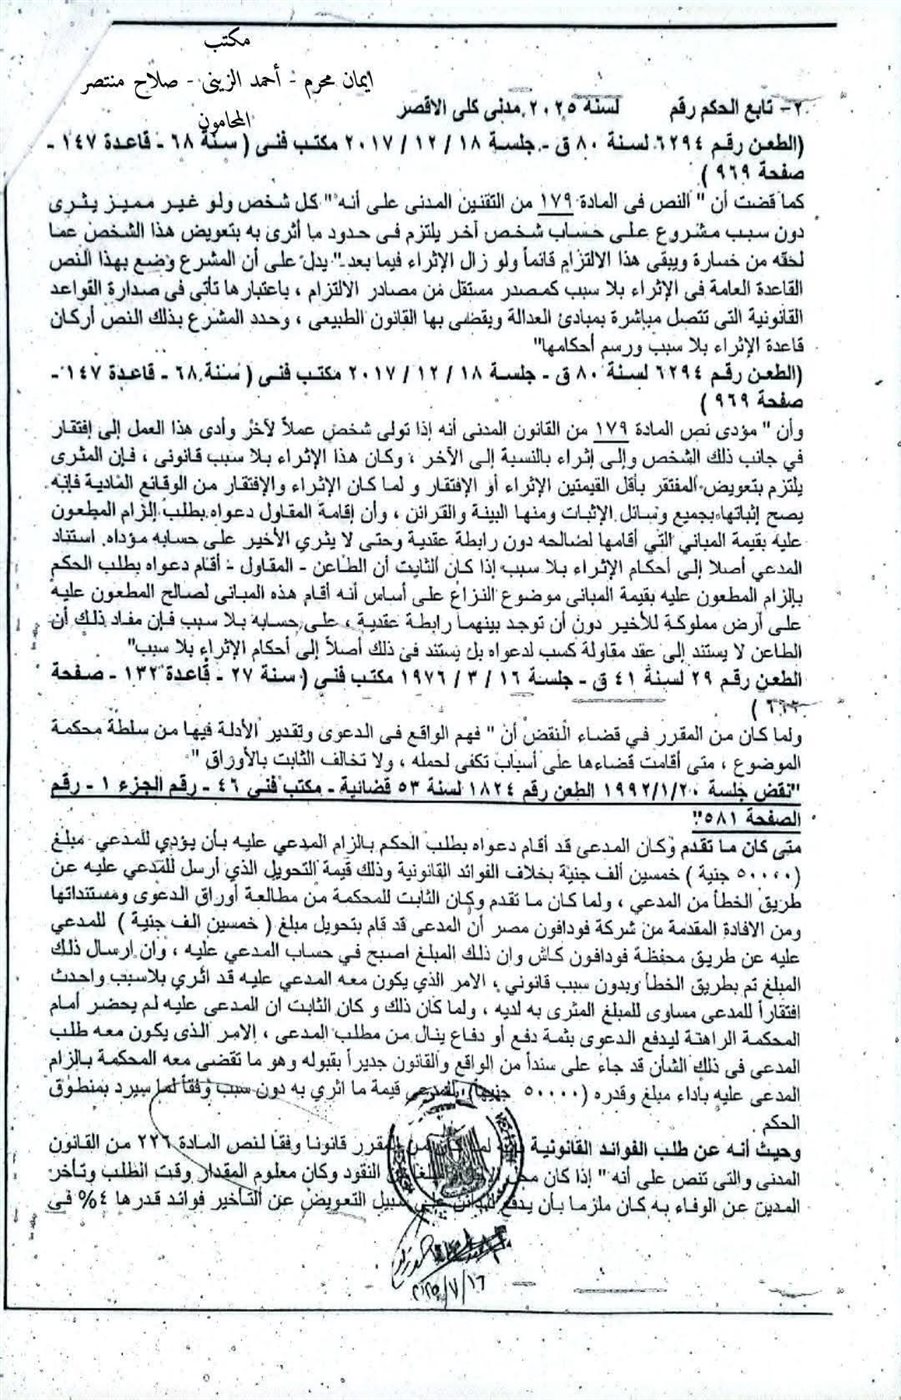 مكتب
ايمان محرم - أحمد الزينى - صلاح منتصر
المحامون
٢- تابع الحكم رقم لسنه ٢٠٢٥ مدنى كلى الاقصر
(الطعن رقم ٦٢٩٤ لسنة ٨٠ ق - جلسة ١٨ / ١٢ / ٢٠١٧ مكتب فنى ( سنة ٦٨ - قاعدة ١٤٧ -
صفحة ٩٦٩ )
كما قضت أن " النص فى المادة ١٧٩ من التقنين المدنى على أنه " كل شخص ولو غير مميز يثرى
دون سبب مشروع على حساب شخص آخر يلتزم فى حدود ما أثرى به بتعويض هذا الشخص عما
لحقه من خسارة ويبقى هذا الالتزام قائماً ولو زال الإثراء فيما بعد " يدل على أن المشرع وضع بهذا النص
القاعدة العامة فى الإثراء بلا سبب كمصدر مستقل من مصادر الالتزام ، باعتبارها تأتى فى صدارة القواعد
القانونية التى تتصل مباشرة بمبادئ العدالة ويقضى بها القانون الطبيعى ، وحدد المشرع بذلك النص أركان
قاعدة الإثراء بلا سبب ورسم أحكامها"
(الطعن رقم ٦٢٩٤ لسنة ٨٠ ق - جلسة ١٨ / ١٢ / ٢٠١٧ مكتب فنى ( سنة ٦٨ - قاعدة ١٤٧ -
صفحة ٩٦٩ )
وأن " مؤدى نص المادة ١٧٩ من القانون المدنى أنه إذا تولى شخص عملاً لآخر وأدى هذا العمل إلى إفتقار
في جانب ذلك الشخص وإلى إثراء بالنسبة إلى الآخر ، وكان هذا الإثراء بلا سبب قانونى ، فإن المثرى
يلتزم بتعويض المفتقر بأقل القيمتين الإثراء أو الإفتقار و لما كان الإثراء والإفتقار من الوقائع المادية فإنه
يصح إثباتها بجميع وسائل الإثبات ومنها البينة والقرائن ، وأن إقامة المقاول دعواه بطلب إلزام المطعون
عليه بقيمة المباني التي أقامها لصالحه دون رابطة عقدية وحتى لا يثري الأخير على حسابه مؤداه استناد
المدعي أصلا إلى أحكام الإثراء بلا سبب إذا كان الثابت أن الطاعن - المقاول - أقام دعواه بطلب الحكم
بإلزام المطعون عليه بقيمة المبانى موضوع النزاع على أساس أنه أقام هذه المبانى لصالح المطعون عليه
على أرض مملوكة للأخير دون أن توجد بينهما رابطة عقدية ، على حسابه بلا سبب فإن مفاد ذلك أن
الطاعن لا يستند إلى عقد مقاولة كسب لدعواه بل يستند فى ذلك أصلاً إلى أحكام الإثراء بلا سبب"
الطعن رقم ٢٩ لسنة ٤١ ق - جلسة ١٦ / ٣ / ١٩٧٦ مكتب فنى ( سنة ٢٧ - قاعدة ١٣٢ - صفحة
)
ولما كان من المقرر في قضاء النقض أن " فهم الواقع فى الدعوى وتقدير الأدلة فيها من سلطة محكمة
الموضوع ، متى أقامت قضاءها على أسباب تكفى لحمله ، ولا تخالف الثابت بالأوراق "
"نقض جلسة ١٩٩٢/١/٢٠ الطعن رقم ١٨٢٤ لسنة ٥٣ قضائية - مكتب فني ٤٦ - رقم الجزء ١ - رقم
الصفحة ٥٨١"
متى كان ما تقدم وكان المدعى قد أقام دعواه بطلب الحكم بالزام المدعي عليه بأن يؤدي للمدعي مبلغ
(٥٠٠٠٠ جنية ) خمسين ألف جنية بخلاف الفوائد القانونية وذلك قيمة التحويل الذي أرسل للمدعي عليه عن
طريق الخطأ من المدعي ، ولما كان ما تقدم وكان الثابت للمحكمة من مطالعة أوراق الدعوى ومستنداتها
ومن الافادة المقدمة من شركة فودافون مصر أن المدعى قد قام بتحويل مبلغ ( خمسين الف جنية ) للمدعي
عليه عن طريق محفظة فودافون كاش وان ذلك المبلغ اصبح في حساب المدعي عليه ، وان ارسال ذلك
المبلغ تم بطريق الخطأ وبدون سبب قانوني ، الامر الذي يكون معه المدعي عليه قد اثري بلاسبب واحدث
افتقاراً للمدعي مساوى للمبلغ المثرى به لديه ، ولما كان ذلك و كان الثابت ان المدعى عليه لم يحضر أمام
المحكمة الراهنة ليدفع الدعوى بثمة دفع أو دفاع ينال من مطلب المدعى ، الامر الذى يكون معه طلب
المدعى فى ذلك الشأن قد جاء على سنداً من الواقع والقانون جديراً بقبوله وهو ما تقضى معه المحكمة بالزام
المدعى عليه باداء مبلغ وقدره (٥٠٠٠٠ جنيها) للمدعى قيمة ما اثري به دون سبب وفقاً لما سيرد بمنطوق
الحكم .
وحيث أنه عن طلب الفوائد القانونية المقرر قانونا وفقا لنص المادة ٢٢٦ من القانون
المدنى والتى تنص على أنه " إذا كان النقود وكان معلوم المقدار وقت الطلب وتأخر
المدين عن الوفاء به كان ملزما بأن يدفع سبيل التعويض عن التأخير فوائد قدرها ٤% فى
٢٠٢٥/٧/١٦